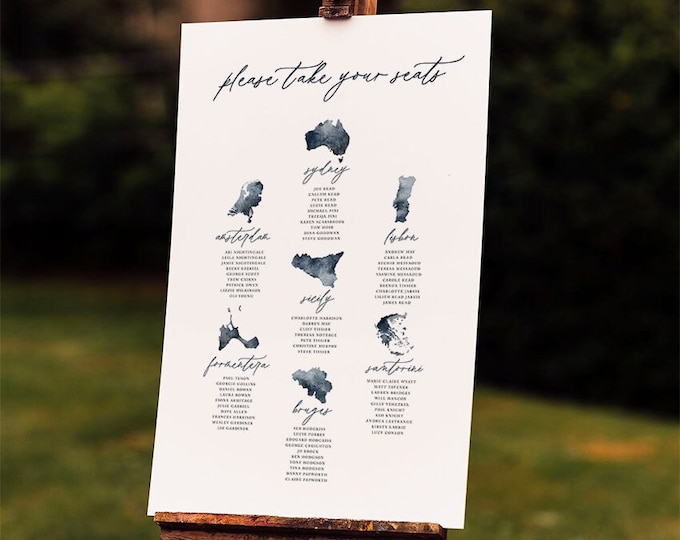 please take your seats
sydney
JOE READ
CALLUM READ
PETE READ
LUCIE READ
MICHAEL PINI
TREEZA PINI
KAREN SCARSBROOK
TOM HOIR
DINA GOODMAN
STEVE GOODMAN
amsterdam
ARI NIGHTINGALE
LEILA NIGHTINGALE
JAMIE NIGHTINGALE
BECKY EZEKIEL
GEORGE SCOTT
TREW CAIRNS
PATRICK ONYN
LIZZIE WILKINSON
OLI YOUNG
lisbon
ANDREW MAY
CARLA READ
SUCHIR MESSAOUD
TERESA MESSAOUD
YASMINE MESSAOUD
CAROLE READ
BRENDA TISSIER
CHARLOTTE JARVIS
LILIEN READ JARVIS
JAMES READ
sicily
CHARLOTTE HARRISON
DARREN MAY
CLIFF TISSIER
THERESA NOTEAGE
PETE TISSIER
CHRISTINE MURPHY
STEVE TISSIER
formentera
PAUL TYSON
GEORGIE COLLINS
DANIEL ROWAN
LAURA ROWAN
FIONA ARMITAGE
JULIE GABRIEL
DAVE ALLEN
FRANCES HARKISON
WESLEY GARDINER
LOI GARDINER
santorini
MARIE CLAIRE WYATT
MATT TAVENER
LAUREN BRIDGES
WILL HANCON
GILLY VENETZKEI
PHIL KNIGHT
KIM KNIGHT
ANDREA LESTRANGE
KIRSTY LARKIE
LUCY CONSON
bruges
BEN HODGKISS
LUCIE FORBES
EDOUARD HODGKISS
GEORGE CREIGHTON
JO BROCK
BEN HODGSON
TONY HODGSON
TINA HODGSON
DANNY PAPWORTH
CLAIRE PAPWORTH